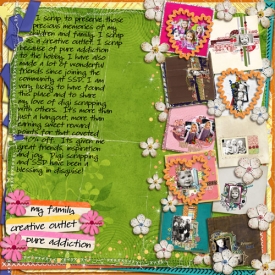 I scrap to preserve those
precious memories of my
children and family. I scrap
as a creative outlet. I scrap
because of pure addiction
to the hobby. I have also
made a lot of wonderful
friends since joining the
community at SSD. I am
very lucky to have found
this place and to share
my love of digi scrapping
with others. It's more than
just a hangout, more than
earning sweet reward
points for that coveted
off. It's given me
great friends, inspiration
and joy. Digi scrapping
and SSD have been a
blessing in disguise!
my family
creative outlet
pure addiction